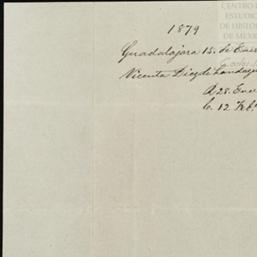 CENTRO DE
ESTUDIOS
DE HISTORIA
DE MEXICO
1879
Guadalajara 15. de Ener
Vicenta Diez de Landazu
A 28. Ener
C. 12. Feb.